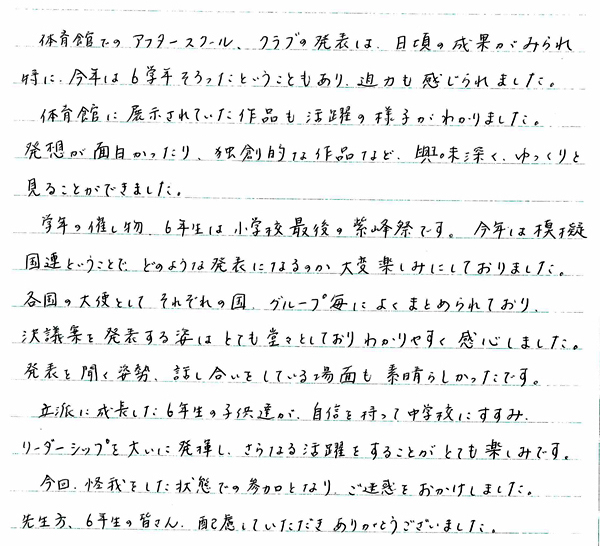 体育館でのアフタースクール、クラブの発表は、日頃の成果がみられ
特に、今年は6学年そろったということもあり、迫力も感じられました。
体育館に展示されていた作品も活躍の様子がわかりました。
発想が面白かったり、独創的な作品など、興味深く、ゆっくりと
見ることができました。
学年の催し物、6年生は小学校最後の紫峰祭です。今年は模擬
国連ということで、どのような発表になるのか大変楽しみにしておりました。
各国の大使として それぞれの国、グループ毎によくまとめられており、
決議案を発表する姿はとても堂々としておりわかりやすく感心しました。
発表を聞く姿勢、話し合いをしている場面も素晴らしかったです。
立派に成長した6年生の子供達が、自信を持って中学校にすすみ、
リーダーシップを大いに発揮し、さらなる活躍をすることがとても楽しみです。
今回、怪我をした状態での参加となり、ご迷惑をおかけしました。
先生方、6年生の皆さん、配慮していただきありがとうございました。